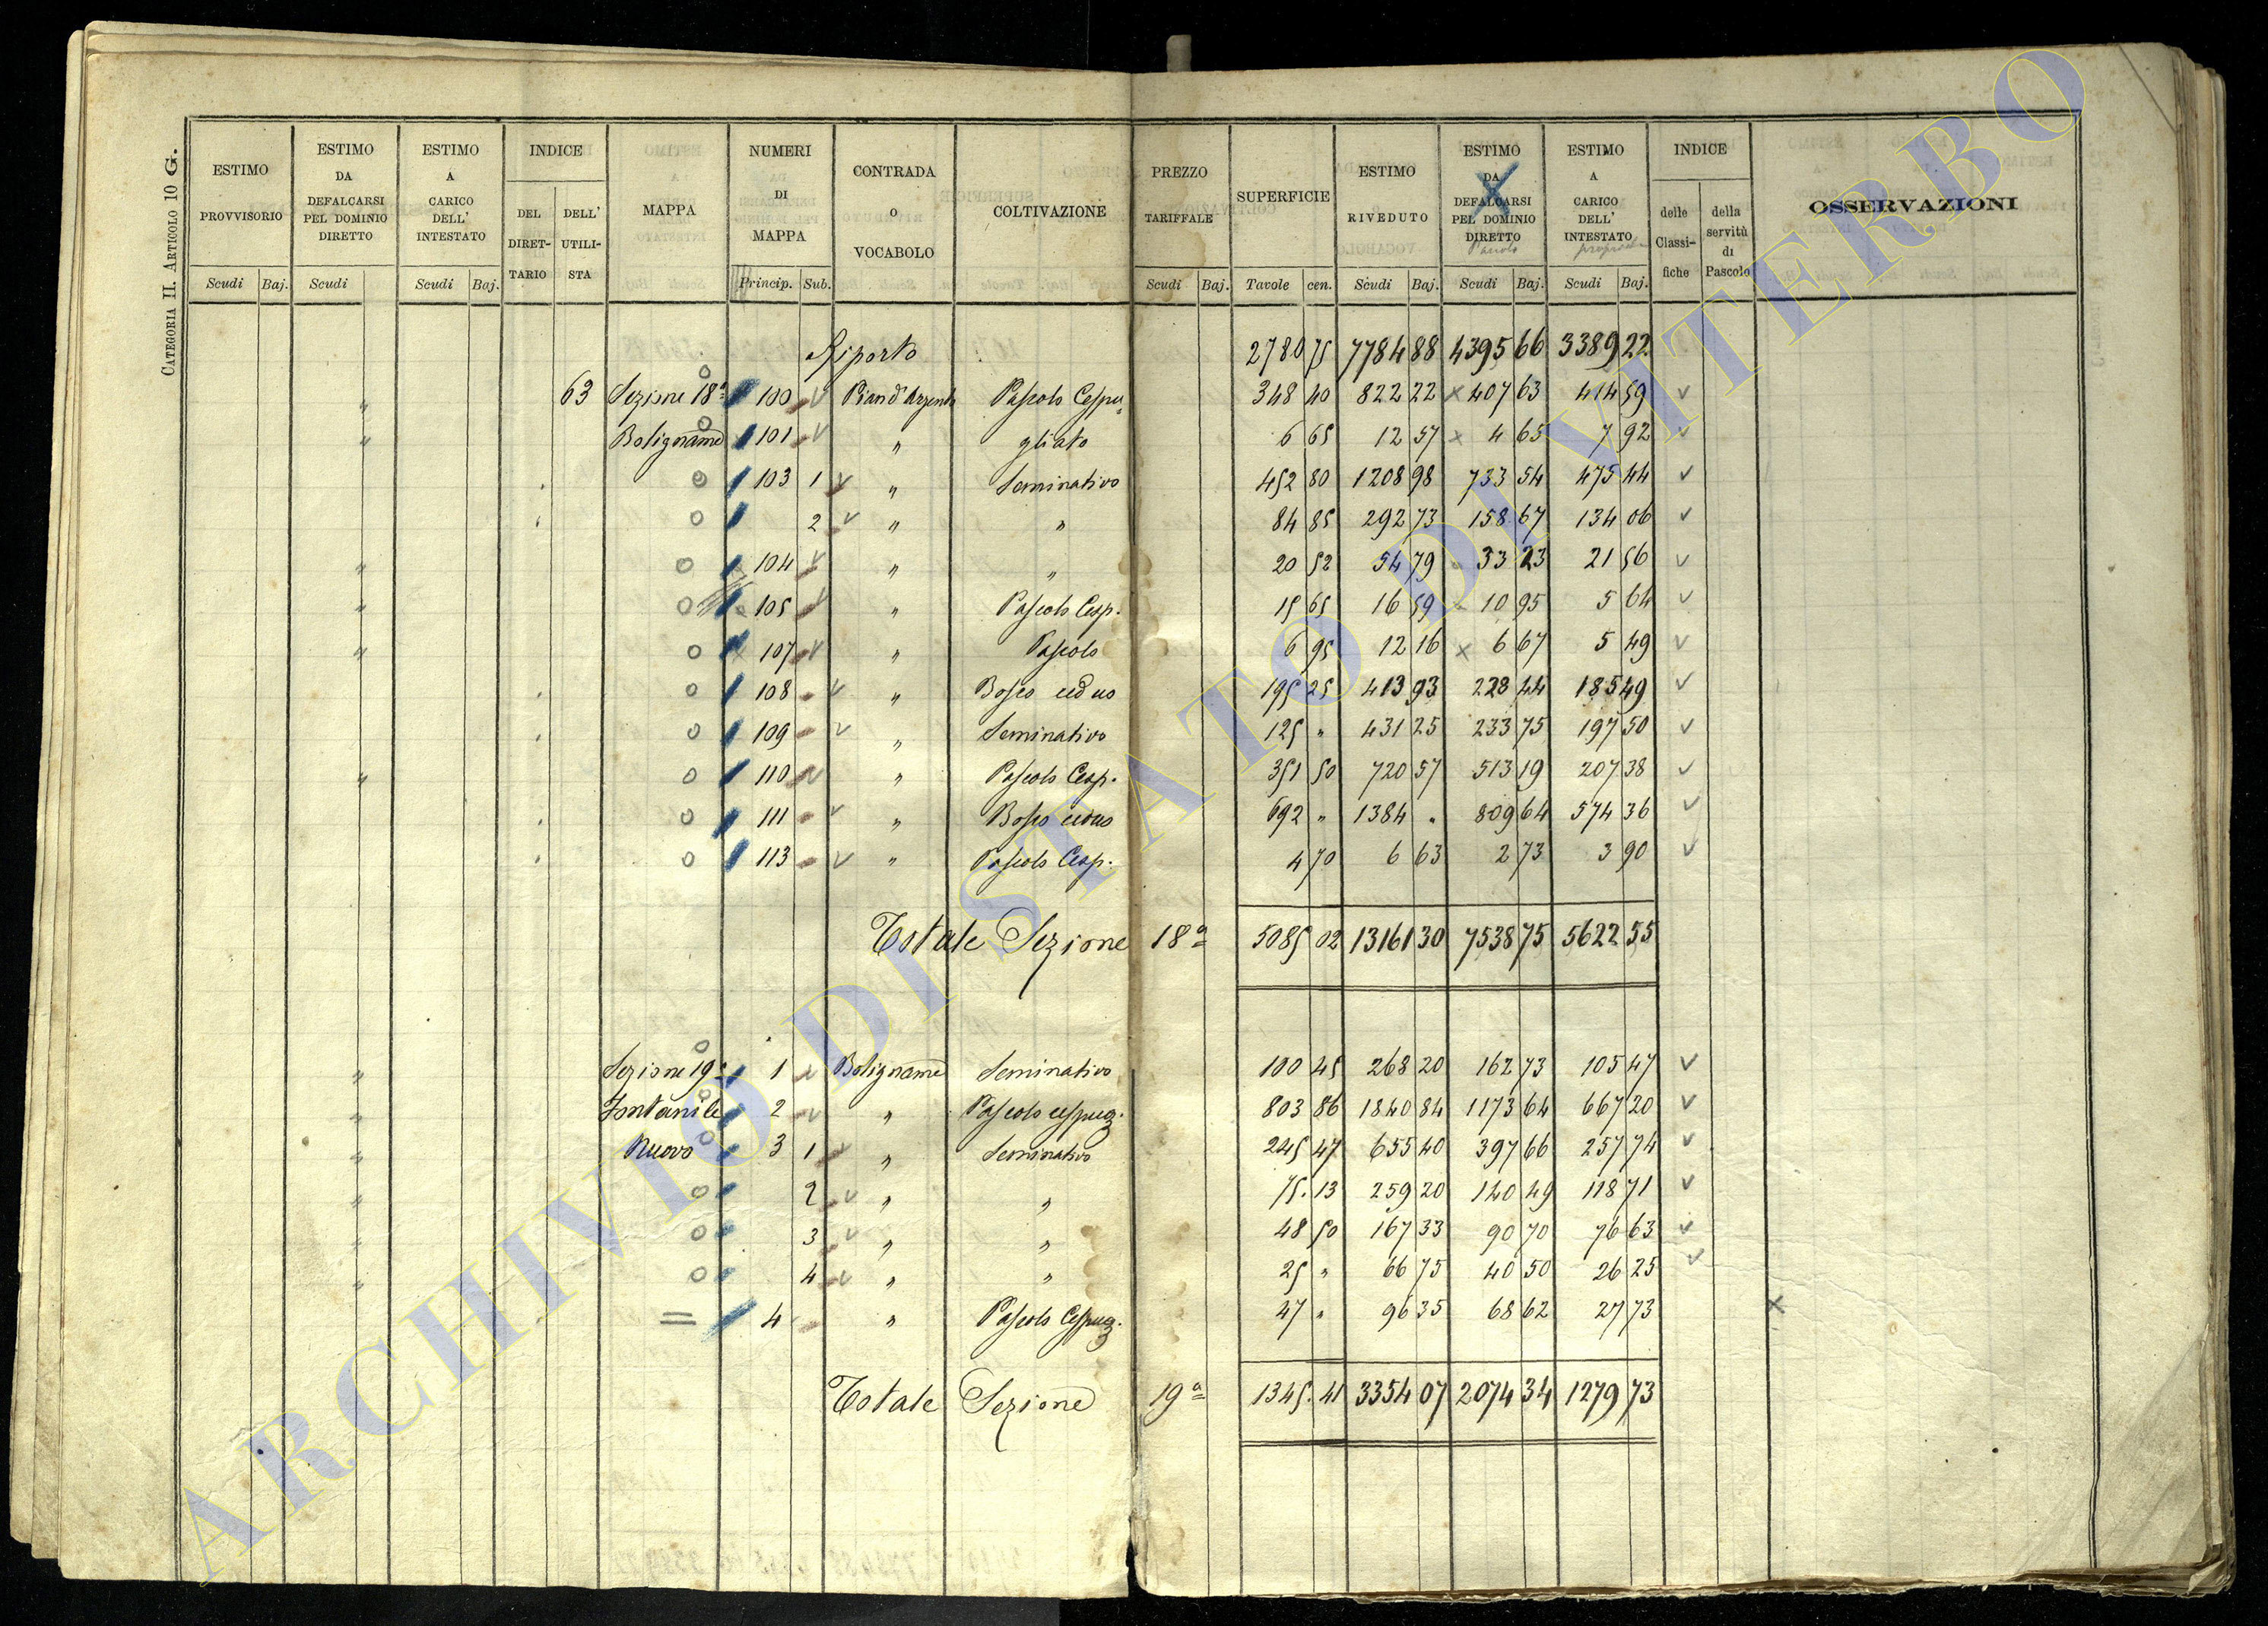 CATEGORIA II. ARTICOLO 10 G.
ESTIMO PROVVISORIO Scudi Baj.
ESTIMO DA DEFALCARSI PEL DOMINIO DIRETTO Scudi
ESTIMO A CARICO DELL' INTESTATO Scudi Baj.
INDICE DEL DIRET-TARIO DELL' UTILI-STA
MAPPA
NUMERI DI MAPPA Princip. Sub.
CONTRADA O VOCABOLO
COLTIVAZIONE
PREZZO TARIFFALE Scudi Baj.
SUPERFICIE Tavole cen.
ESTIMO RIVEDUTO Scudi Baj.
ESTIMO DA DEFALCARSI PEL DOMINIO DIRETTO Pascolo Scudi Baj.
ESTIMO A CARICO DELL' INTESTATO Scudi Baj.
INDICE delle Classi-fiche della servitù di Pascolo
OSSERVAZIONI
Riporto 2780 75 7784 88 4395 66 3389 22
63 Sezione 18ª 100 Pian d'Argento Pascolo Cespu= 348 40 822 22 × 407 63 414 59
" Boligname 101 " gliato 6 65 12 57 × 4 65 7 92
103 1 " Seminativo 452 80 1208 98 733 54 475 44
2 " " 84 85 292 73 158 67 134 06
" 104 " " 20 52 54 79 33 23 21 56
" 105 " Pascolo Cesp. 15 65 16 59 10 95 5 64
" 107 " Pascolo 6 95 12 16 × 6 67 5 49
108 " Bosco ceduo 195 25 413 93 228 44 185 49
109 " Seminativo 125 " 431 25 233 75 197 50
" 110 " Pascolo Cesp. 351 50 720 57 513 19 207 38
111 " Bosco ceduo 692 " 1384 " 809 64 574 36
113 " Pascolo Cesp. 4 70 6 63 2 73 3 90
Totale Sezione 18ª 5085 02 13161 30 7538 75 5622 55
" Sezione 19ª 1 Boligname Seminativo 100 45 268 20 162 73 105 47
" Fontanile 2 " Pascolo cespug. 803 86 1840 84 1173 64 667 20
" Nuovo 3 1 " Seminativo 245 47 655 40 397 66 257 74
" 2 " " 75. 13 259 20 140 49 118 71
" 3 " " 48 50 167 33 90 70 76 63
" 4 " " 25 " 66 75 40 50 26 25
= 4 " Pascolo Cespug. 47 " 96 35 68 62 27 73 ×
Totale Sezione 19ª 1345. 41 3354 07 2074 34 1279 73
ARCHIVIO DI STATO DI VITERBO